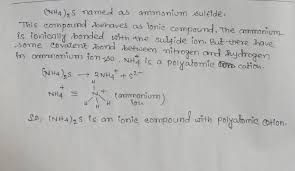 (NH4)2S named as ammonium sulfide.
This compound behaves as ionic compound. The ammonium
is ionically bonded with the sulfide ion. But there have
some covalent bond between nitrogen and hydrogen
in ammonium ion so. NH4 is a polyatomic cation.
(NH4)2S → 2NH4+ + S2-
H
NH4+ ≡ H N+ H (ammonium)
H ion
So, (NH4)2S is an ionic compound with polyatomic cation.